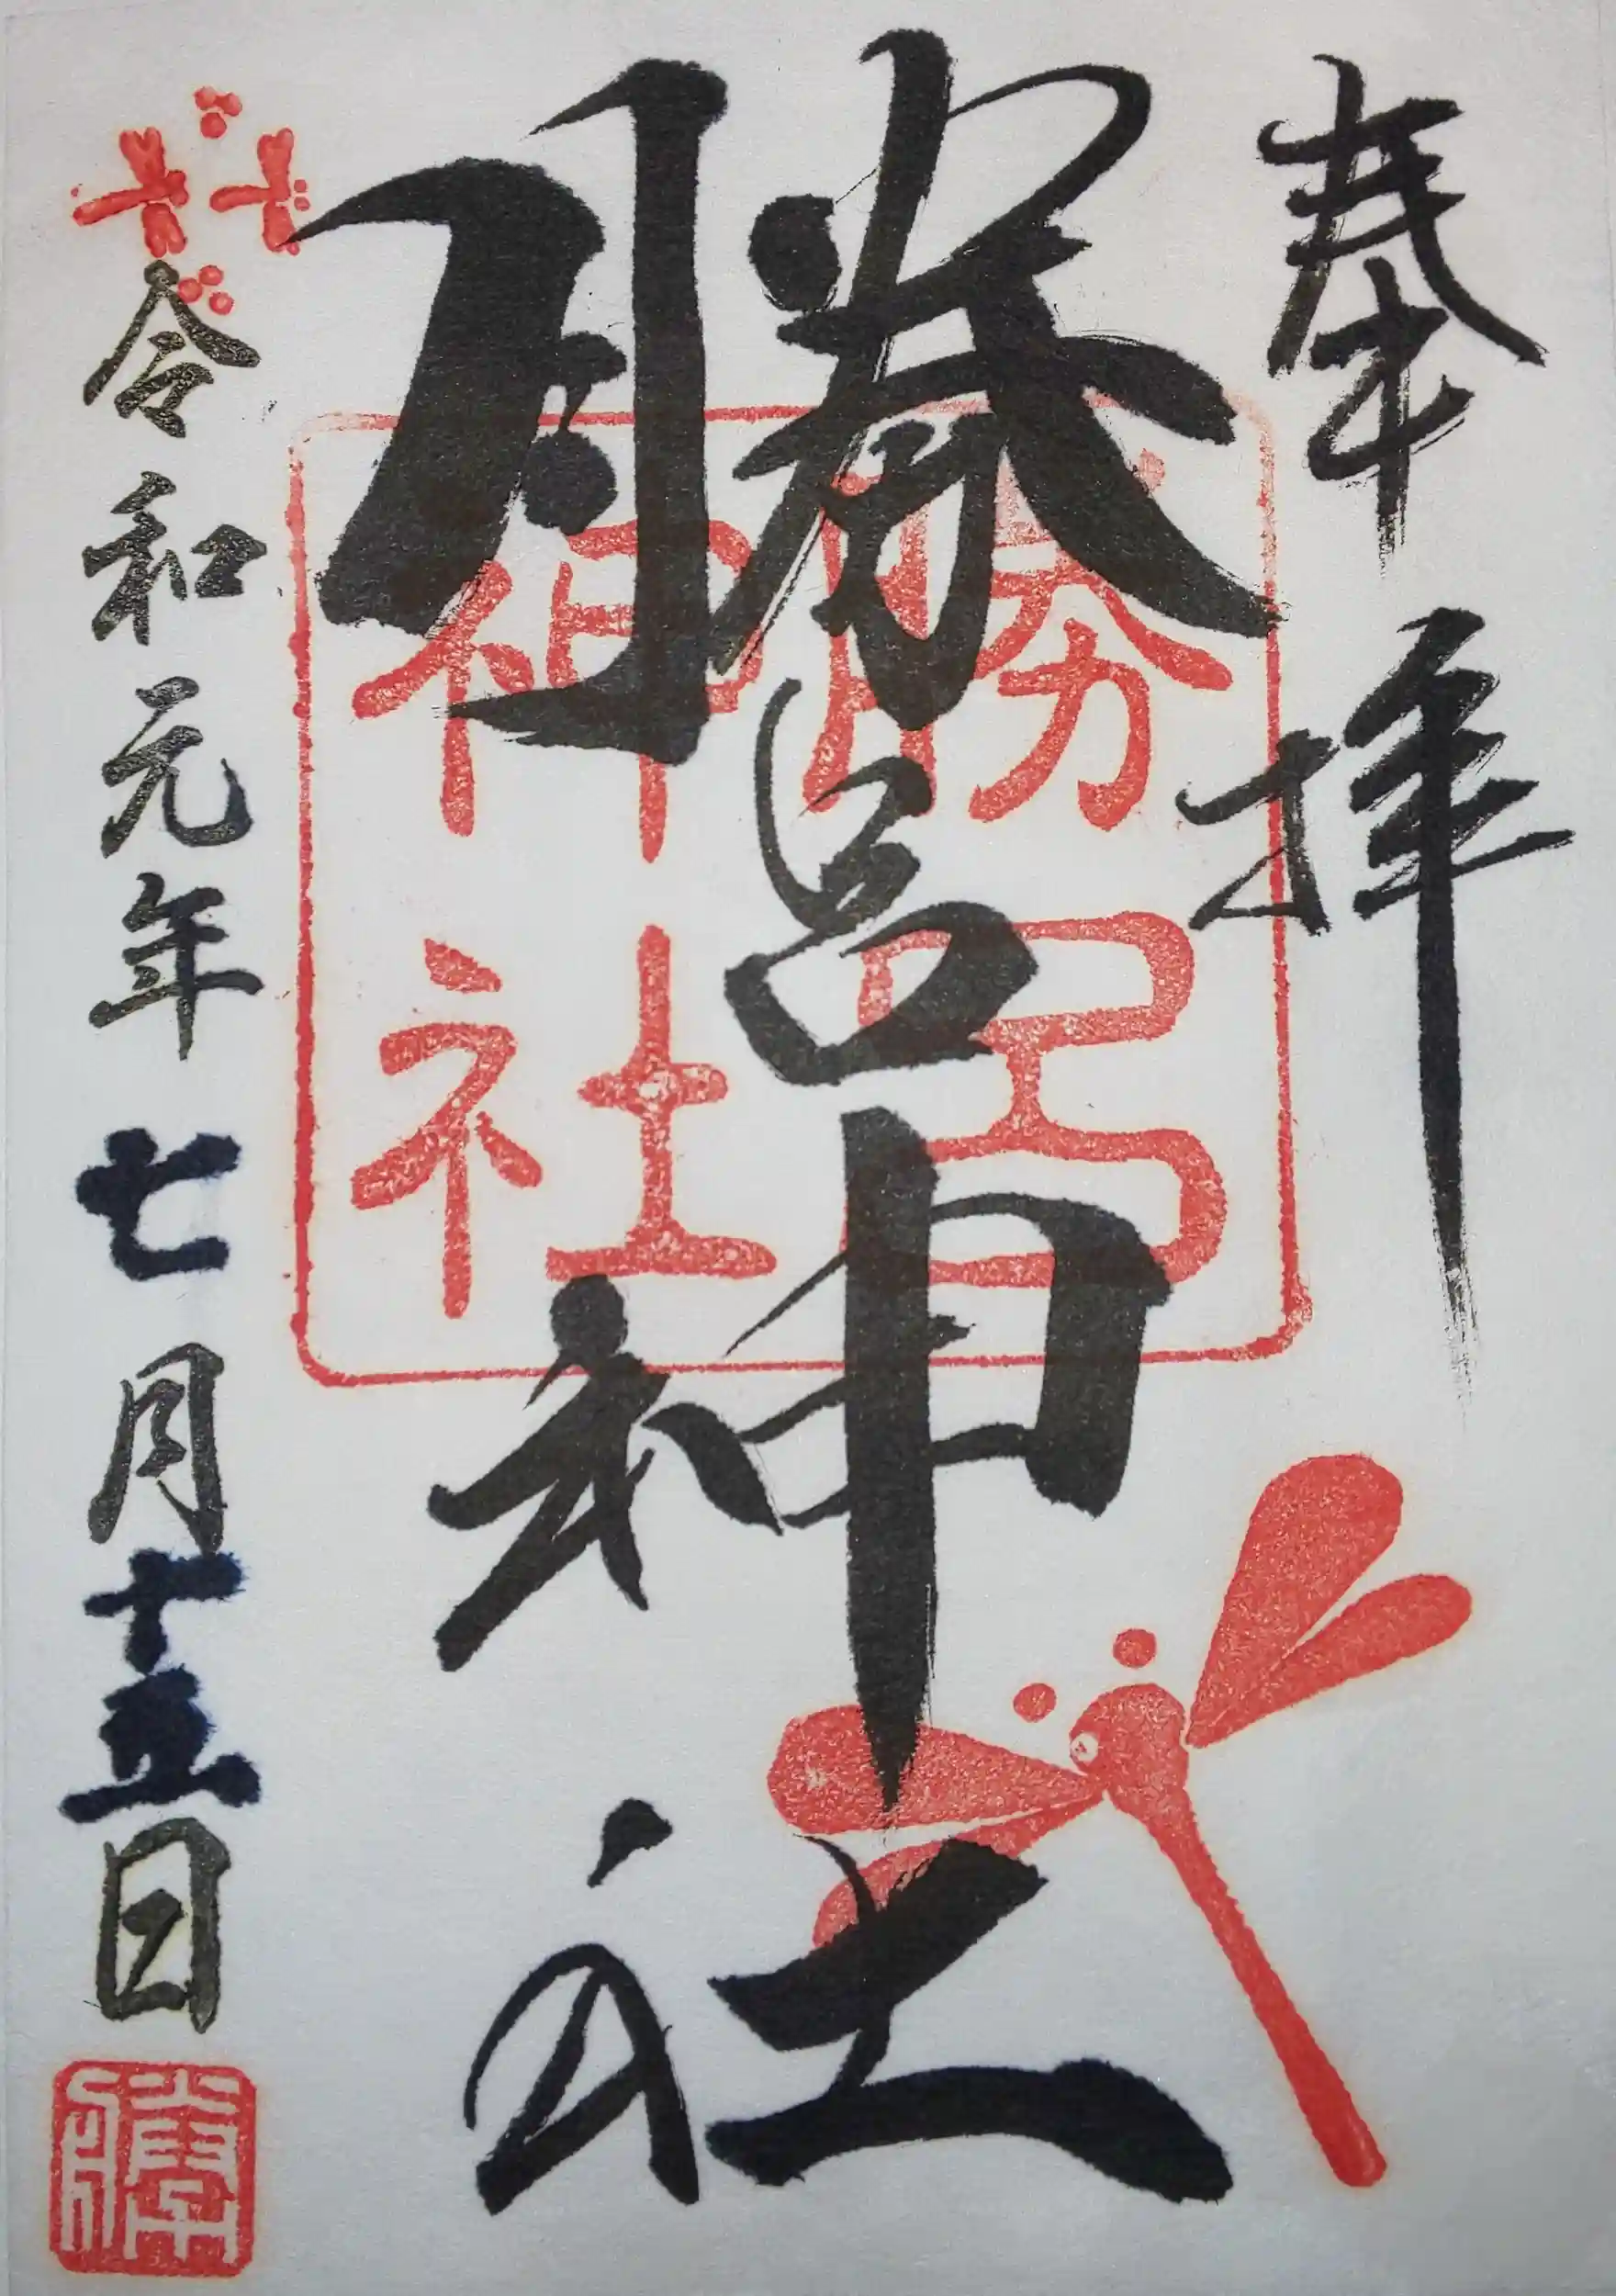 奉拝
勝宮神社
勝宮神社
令和元年七月十五日